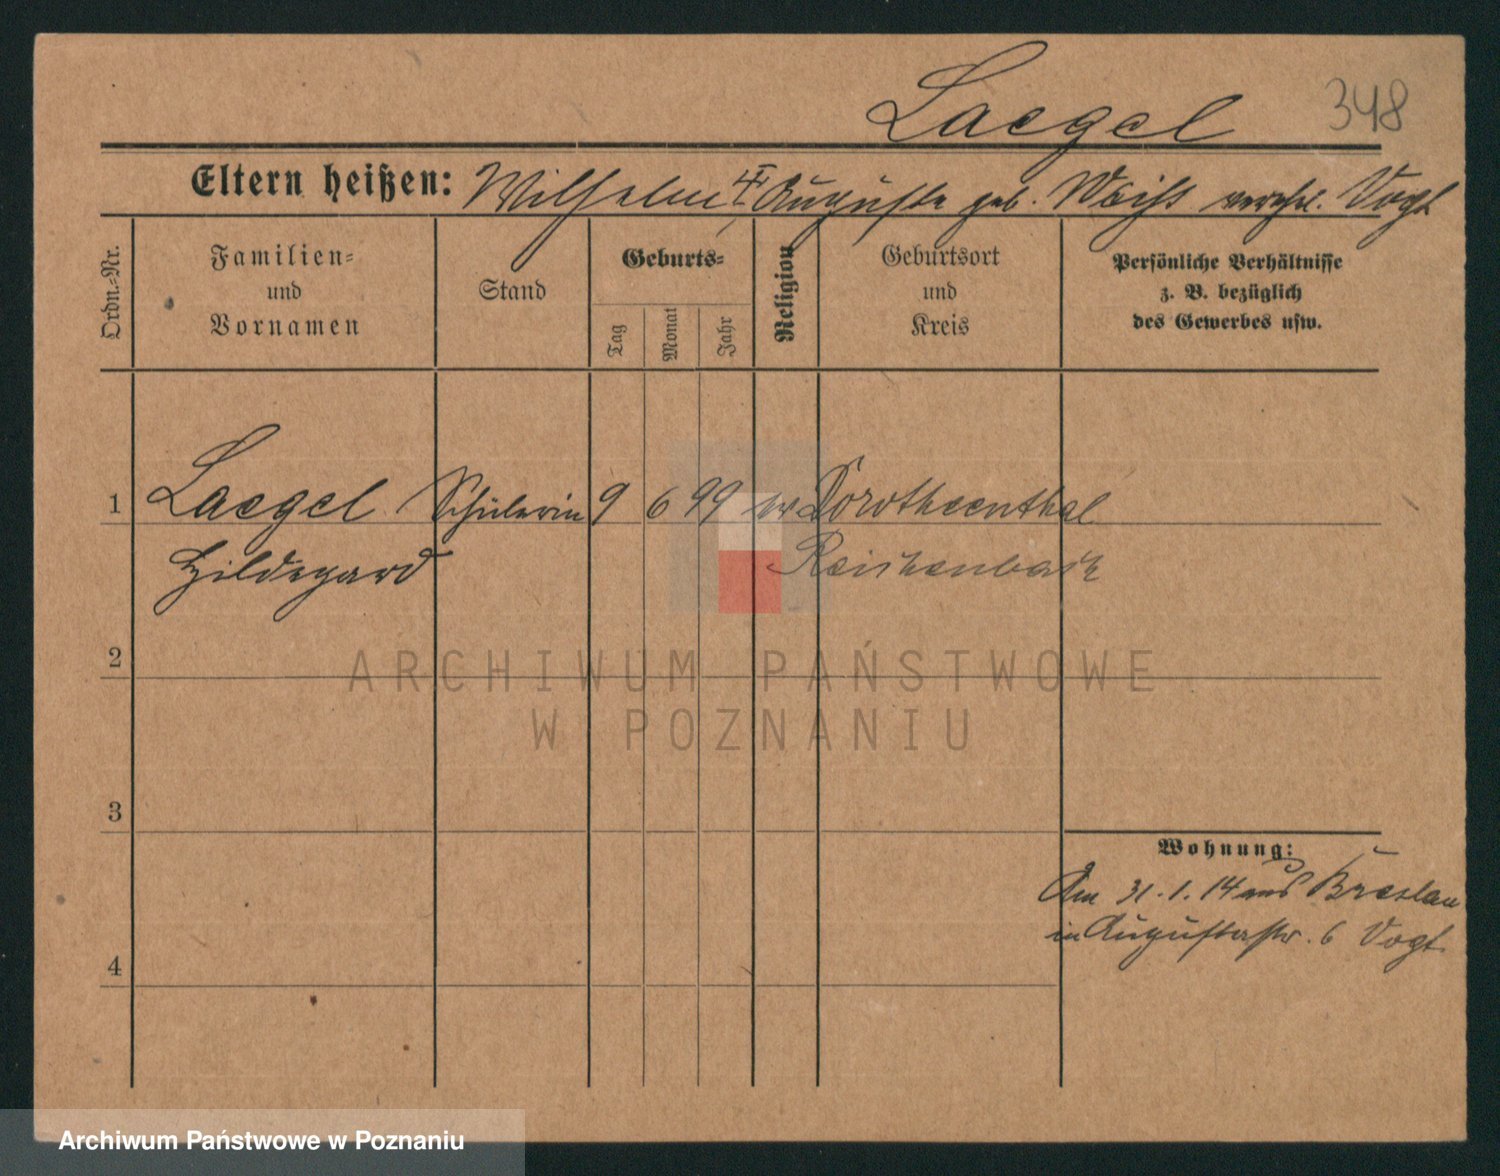 Laegel 348
Eltern heißen: Wilhelm Auguste geb. Weiß verehel. Vogt
Ordn.-Nr.
Familien-
und
Vornamen
Stand
Geburts-
Tag
Monat
Jahr
Religion
Geburtsort
und
Kreis
Persönliche Verhältnisse
z. B. bezüglich
des Gewerbes usw.
1 Laegel Schülerin 9 6 99 ev Dorotheenthal
Hildegard Reichenbach
2
3
4
Wohnung:
Am 31.1.14 aus Breslau
in Augustastr. 6 Vogt
ARCHIWUM PAŃSTWOWE
W POZNANIU
Archiwum Państwowe w Poznaniu